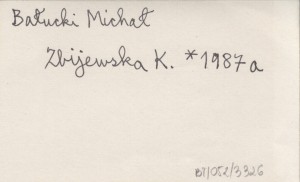 Bałucki Michał
Zbijewska K. *1987a
BT/052/3326